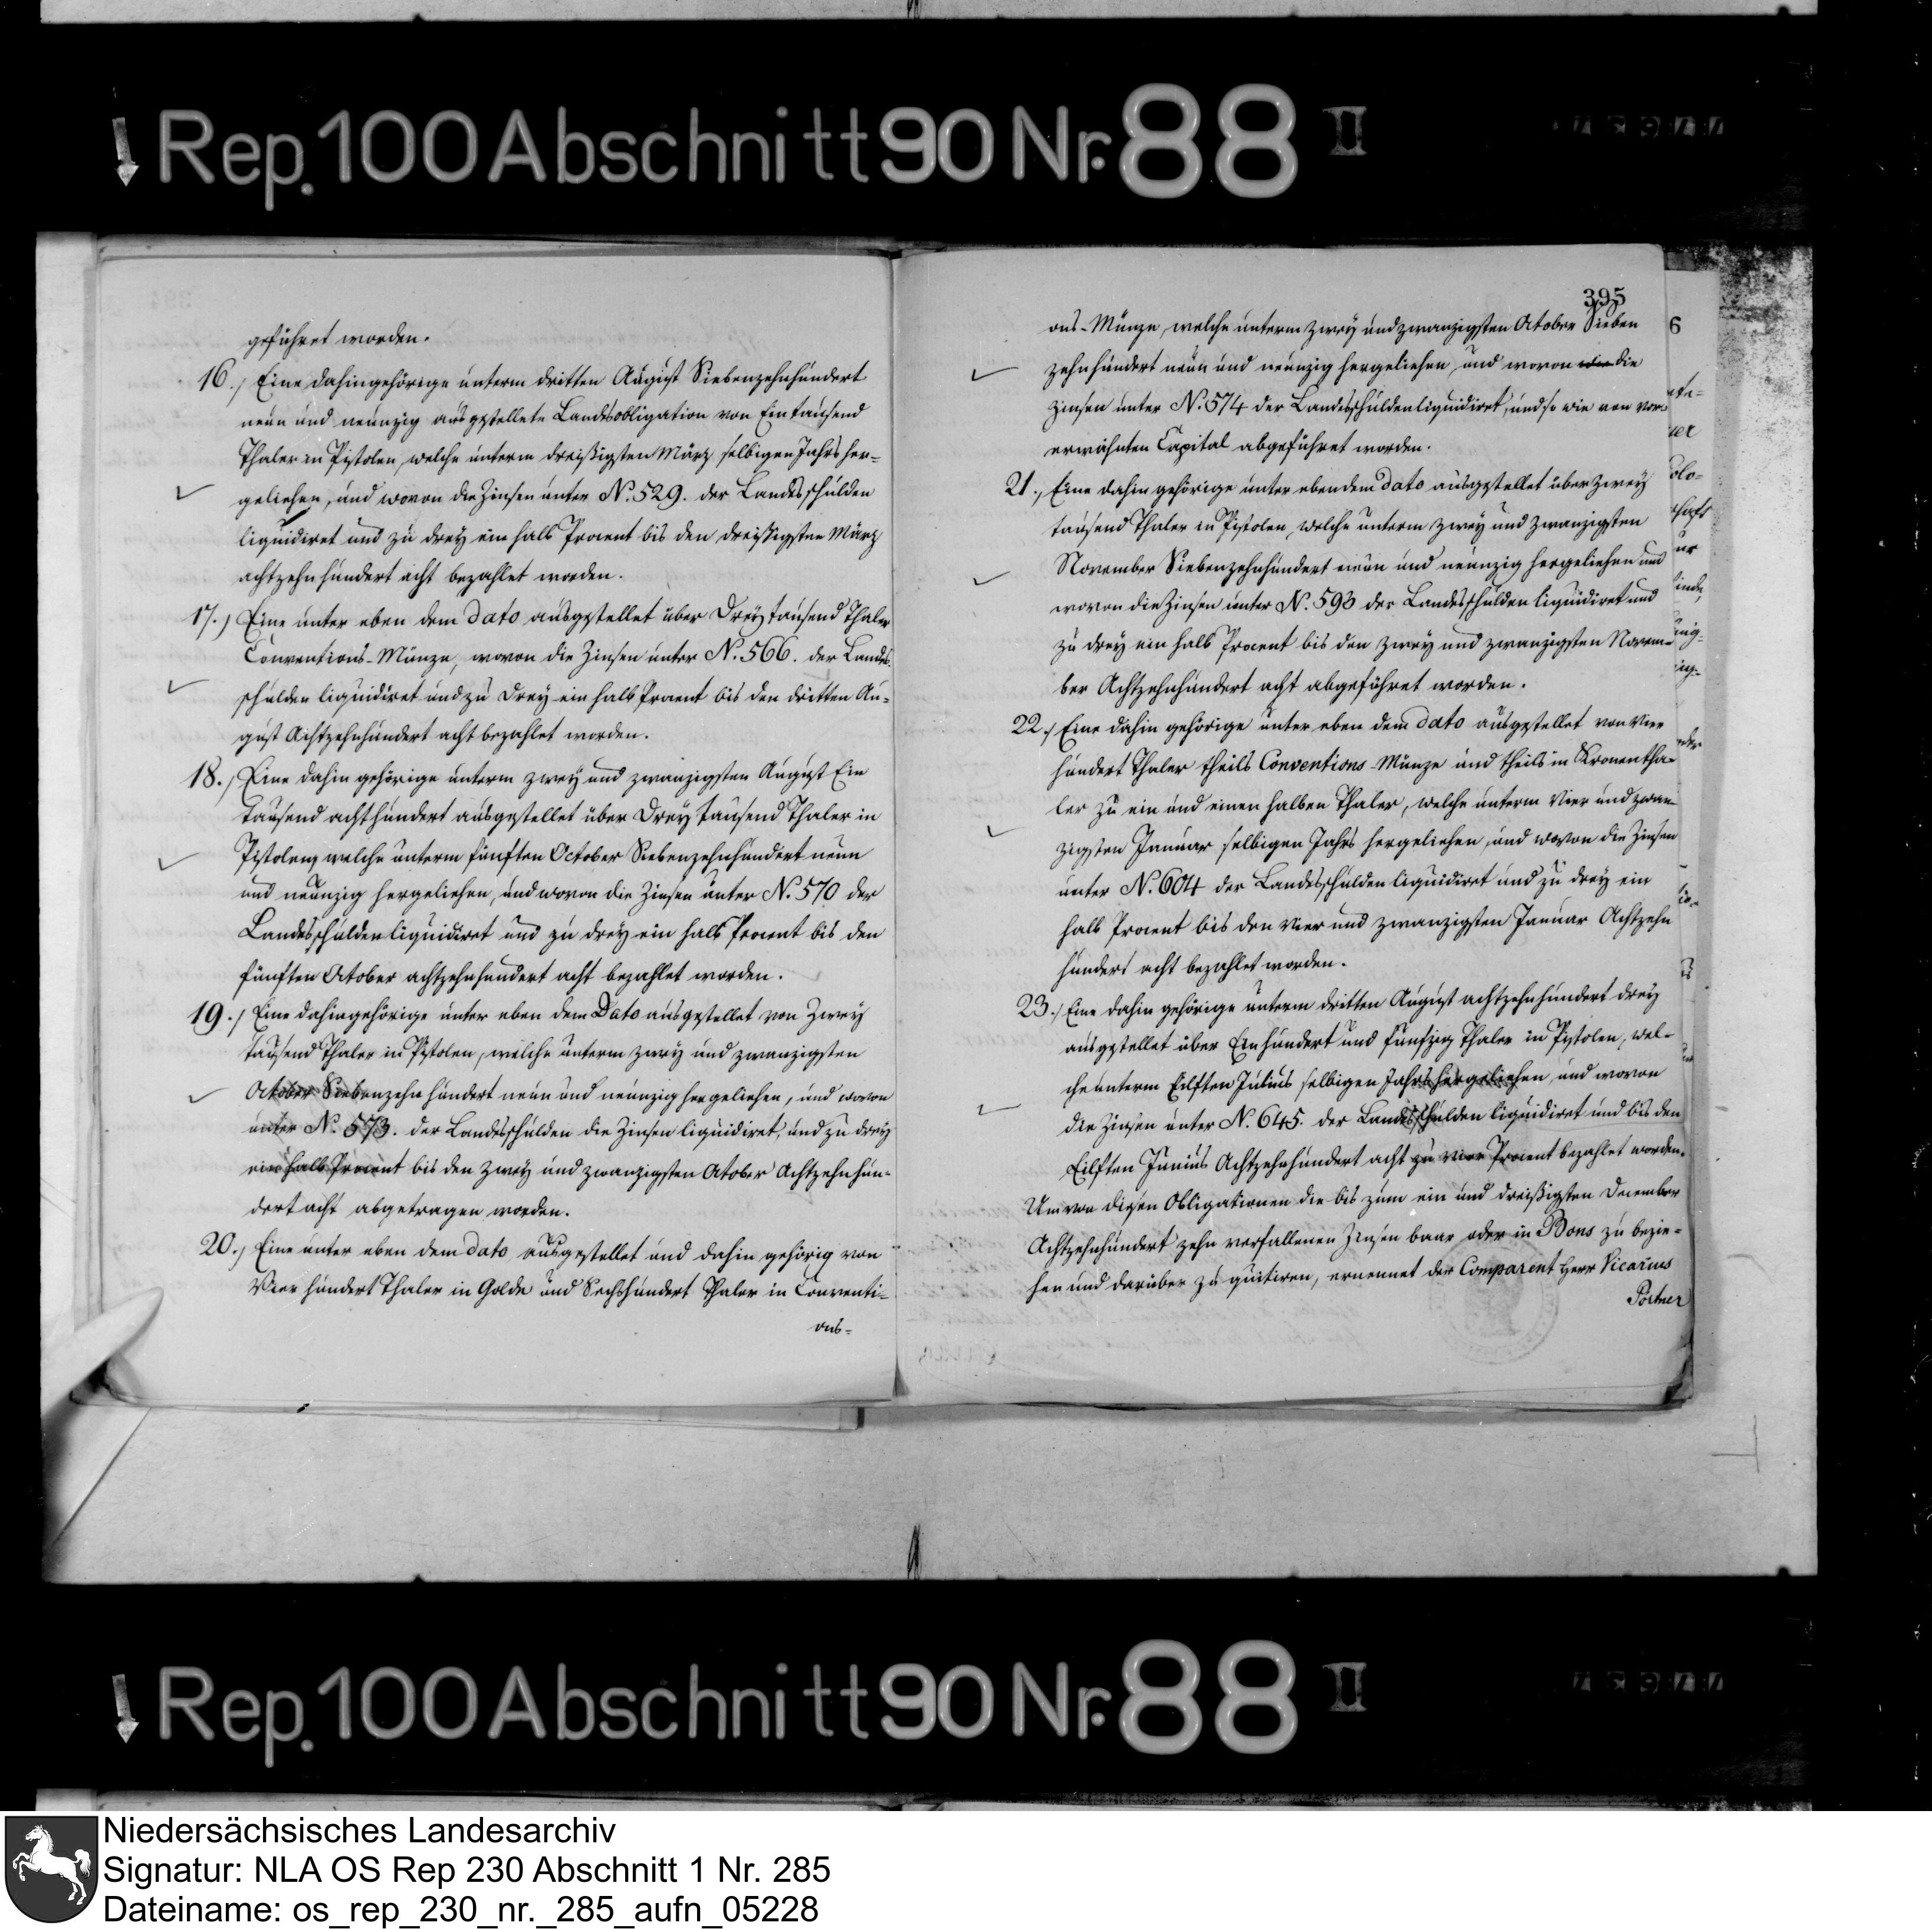 Rep. 100 Abschnitt 90 Nr. 88 II
geführet worden.
16.) Eine dahingehörige unterm dritten August Siebenzehnhundert
neun und neunzig ausgestellete Landesobligation von Ein tausend
Thaler in Pistolen, welche unterm dreißigsten März selbigen Jahrs her=
geliehen, und wovon die Zinsen unter N. 529. der Landesschulden
liquidiret und zu drey ein halb Procent bis den dreißigsten März
achtzehnhundert acht bezahlet worden.
17.) Eine unter eben dem dato ausgestellet über Drey tausend Thaler
Conventions-Münze, wovon die Zinsen unter N. 566. der Landes-
schulden liquidiret und zu drey ein halb Procent bis den dritten Au=
gust Achtzehnhundert acht bezahlet worden.
18.) Eine dahin gehörige unterm zwey und zwanzigsten August Ein
tausend achthundert ausgestellet über Drey tausend Thaler in
Pistolen, welche unterm fünften October Siebenzehnhundert neun
und neunzig hergeliehen, und wovon die Zinsen unter N. 570 der
Landesschulden liquidiret und zu drey ein halb Procent bis den
fünften October achtzehnhundert acht bezahlet worden.
19.) Eine dahingehörige unter eben dem Dato ausgestellet von Zwey
tausend Thaler in Pistolen, welche unterm zwey und zwanzigsten
October Siebenzehn hundert neun und neunzig hergeliehen, und wovon
unter N. 573. der Landesschulden die Zinsen liquidiret, und zu drey
ein halb Procent bis den zwey und zwanzigsten October Achtzehnhun=
dert acht abgetragen worden.
20.) Eine unter eben dem dato ausgestellet und dahin gehörig von
Vier hundert Thaler in Golde und Sechshundert Thaler in Conventi=
ons=
395
ons-Münze, welche unterm zwey und zwanzigsten October Sieben
zehnhundert neun und neunzig hergeliehen, und wovon die
Zinsen unter N. 574 der Landesschulden liquidiret, und so wie von vor=
erwähnten Capital abgeführet worden.
21.) Eine dahin gehörige unter ebendem dato ausgestellet über zwey
tausend Thaler in Pistolen, welche unterm zwey und zwanzigsten
November Siebenzehnhundert neun und neunzig hergeliehen und
wovon die Zinsen unter N. 593 der Landesschulden liquidiret und
zu drey ein halb Procent bis den zwey und zwanzigsten Novem=
ber Achtzehnhundert acht abgeführet worden.
22.) Eine dahin gehörige unter eben dem dato ausgestellet von Vier
hundert Thaler theils Conventions-Münze und theils in Kronentha=
ler zu ein und einen halben Thaler, welche unterm Vier und zwan=
zigsten Januar selbigen Jahrs hergeliehen, und wovon die Zinsen
unter N. 604 der Landesschulden liquidiret und zu drey ein
halb Procent bis den Vier und zwanzigsten Januar Achtzehn
hundert acht bezahlet worden.
23.) Eine dahin gehörige unterm dritten August achtzehnhundert drey
ausgestellet über Einhundert und fünfzig Thaler in Pistolen, wel=
che unterm Eilften Julius selbigen Jahrs hergeliehen, und wovon
die Zinsen unter N. 645. der Landesschulden liquidiret und bis den
Eilften Junius Achtzehnhundert acht zu vier Procent bezahlet worden.
Um von diesen Obligationen die bis zum ein und dreißigsten December
Achtzehnhundert zehn verfallenen Zinsen baar oder in Bons zu bezie=
hen und darüber zu quitiren, ernennet der Comparent Herr Vicarius
Pörtner
6
Rep. 100 Abschnitt 90 Nr. 88 II
Niedersächsisches Landesarchiv
Signatur: NLA OS Rep 230 Abschnitt 1 Nr. 285
Dateiname: os_rep_230_nr._285_aufn_05228